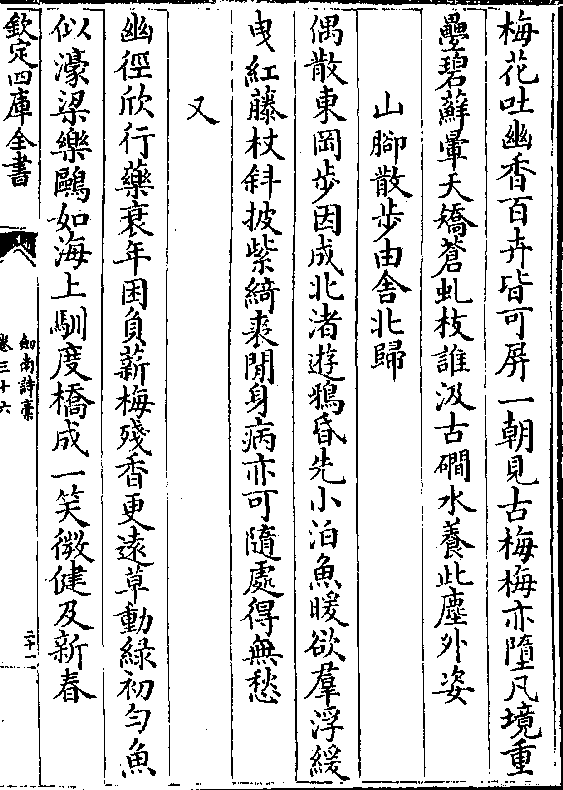 梅花吐幽香百卉皆可屏一朝見古梅梅亦墮凡境重
疊碧蘚暈夭矯蒼虬枝誰汲古磵水養此塵外姿
山腳散步由舎北歸
偶散東岡步因成北渚遊鴉昏先小泊魚暖欲羣浮緩
曳紅藤杖斜披紫綺裘閒身病亦可隨處得無愁
又
幽徑欣行藥衰年困負薪梅殘香更遠草動緑初勻魚
似濠梁樂鷗如海上馴度橋成一笑微健及新春
欽定四庫全書
劍南詩藁
卷三十六
二十一